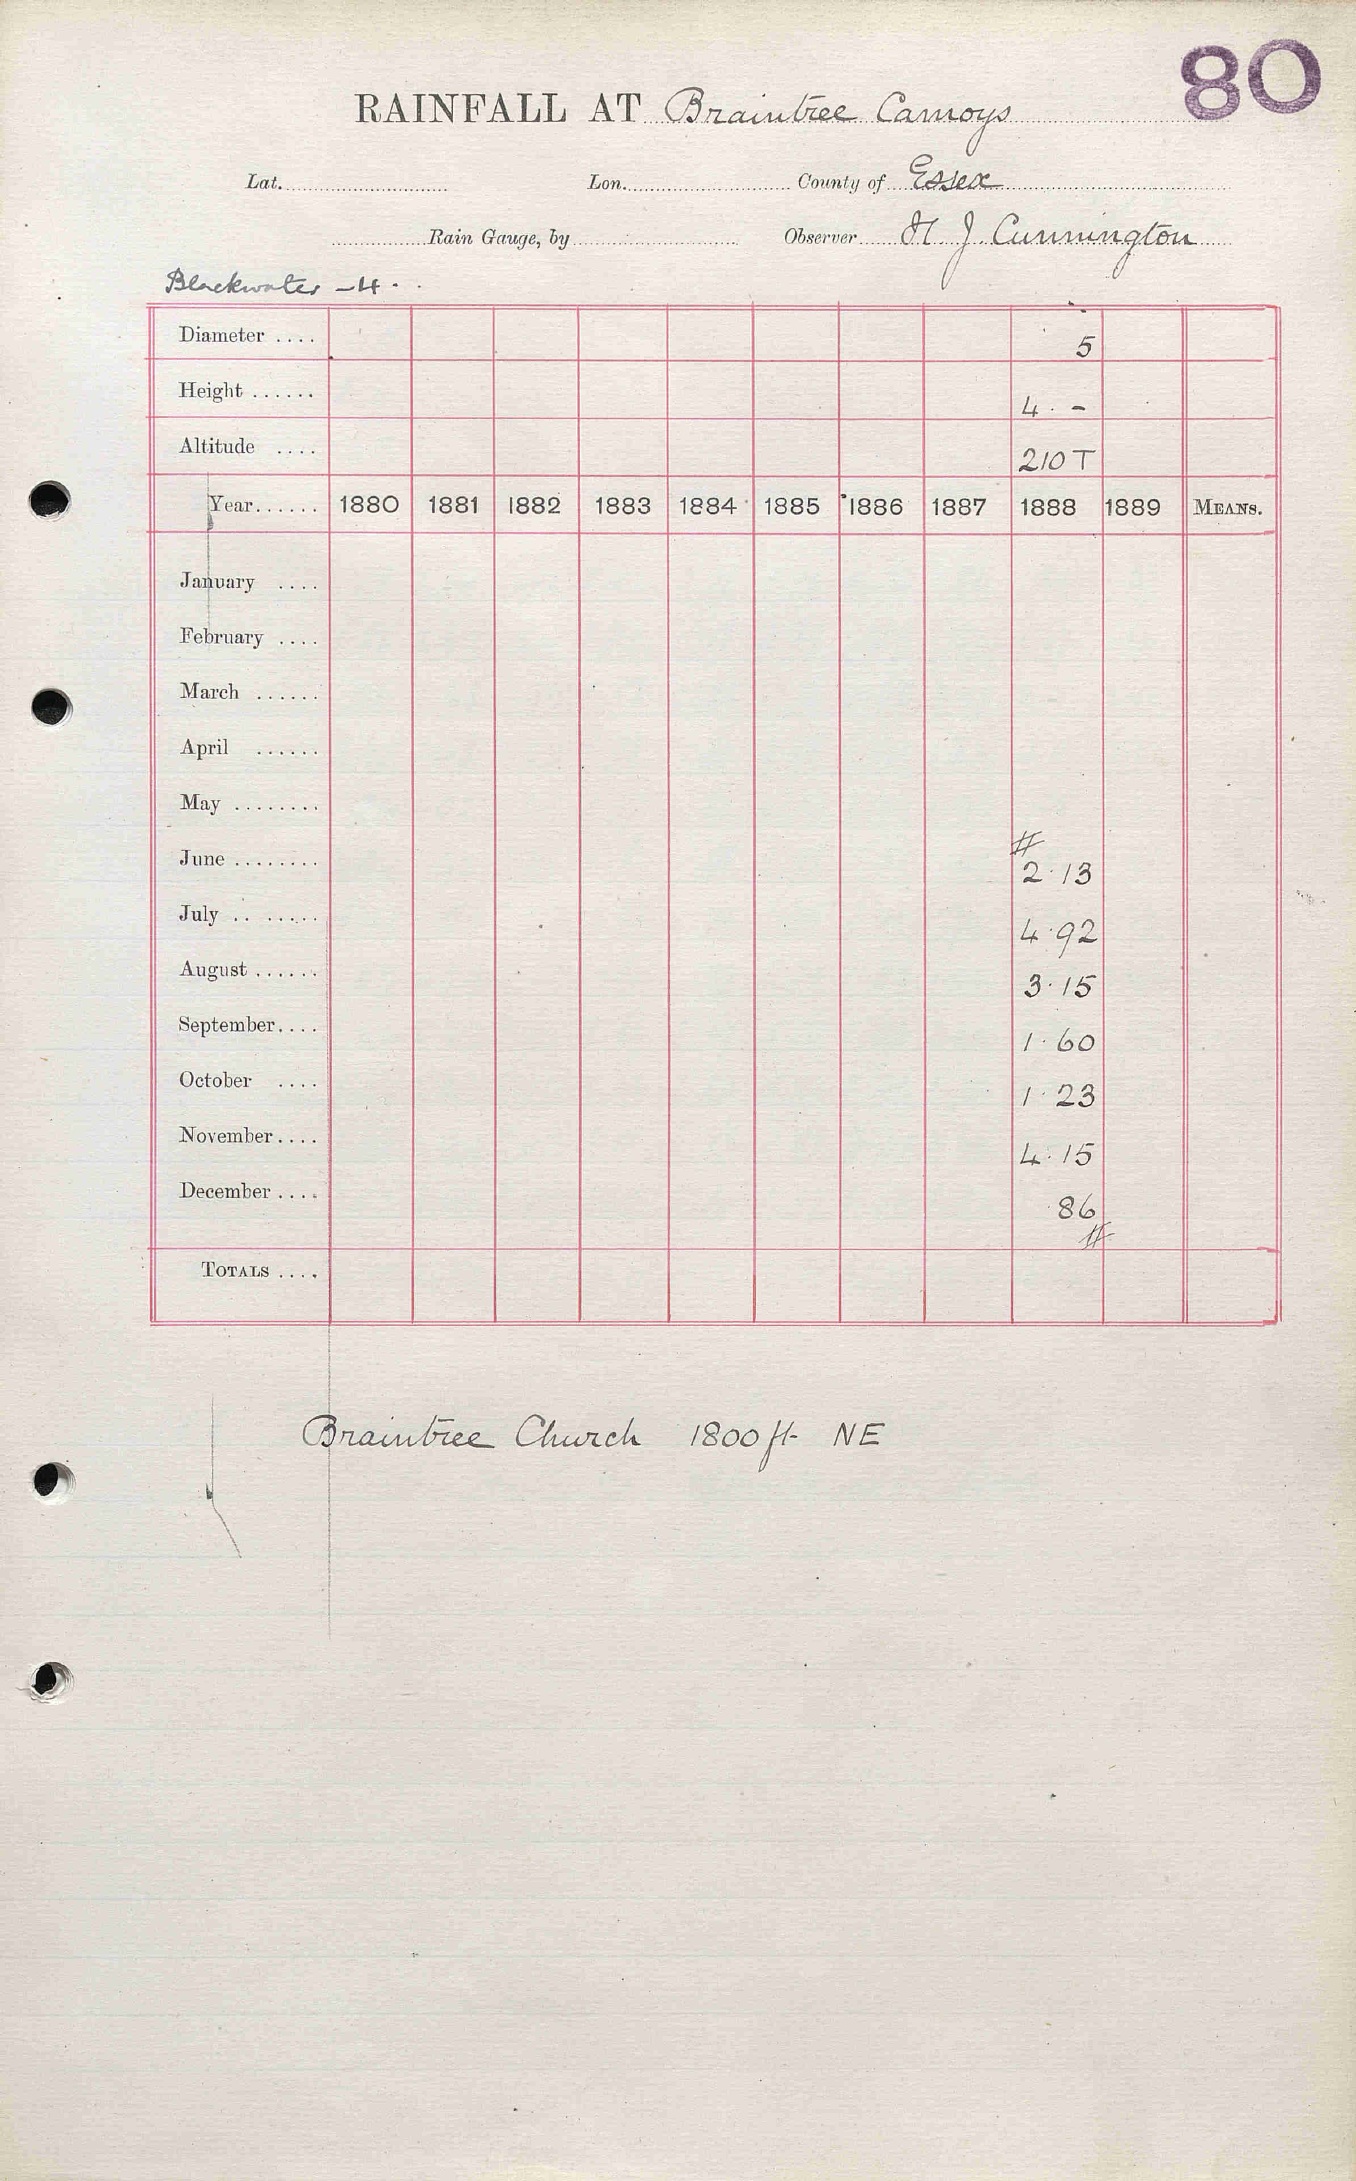 80
RAINFALL AT Braintree Camoys
Lat. Lon. County of Essex
Rain Gauge, by Observer H J Cunnington
Blackwater - 4.
Diameter .... 5
Height ...... 4 . -
Altitude .... 210 T
Year...... 1880 1881 1882 1883 1884 1885 1886 1887 1888 1889 MEANS.
January ....
February ....
March ......
April ......
May ........
#
June ........ 2.13
July .. ...... 4.92
August ...... 3.15
September.... 1.60
October .... 1.23
November.... 4.15
December .... .86
#
TOTALS ....
Braintree Church 1800 ft NE